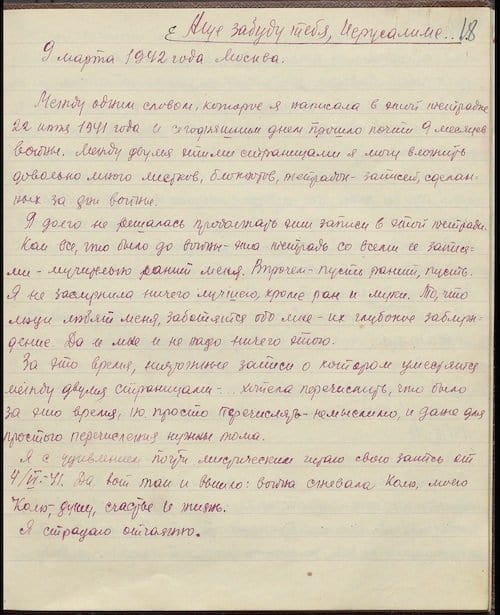 Аще забуду тебя, Иерусалиме... 18
9 марта 1942 года Москва.
Между одним словом, которое я написала в этой тетрадке
22 июня 1941 года и сегодняшним днем прошло почти 9 месяцев
войны. Между двумя этими страницами я могу вложить
довольно много листков, блокнотов, тетрадок - записей, сделан-
ных за дни войны.
Я долго не решалась продолжать эти записи в этой тетради.
Как все, что было до войны - эта тетрадь со всеми ее запися-
ми - мучительно ранит меня. Впрочем - пусть ранит, пусть.
Я не заслужила ничего лучшего, кроме ран и муки. То, что
люди любят меня, заботятся обо мне - их глубокое заблуж-
дение. Да и мне и не надо ничего этого.
За это время, ничтожные записи о котором уместятся
между двумя страницами... хотела перечислить, что было
за это время, но просто перечислять - немыслимо, и даже для
простого перечисления нужны тома.
Я с удивлением почти мистическим читаю свою запись от
4/VI-41. Да вот так и вышло: война сжевала Колю, моего
Колю, душу, счастье и жизнь.
Я страдаю отчаянно.